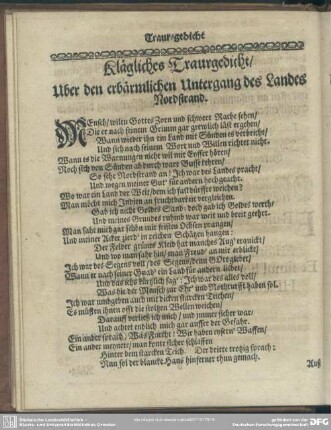 Traur-gedicht
Klägliches Traurgedicht/
Uber den erbärmlichen Untergang des Landes
Nordstrand.
MEnsch/ wiltu Gottes Zorn und schwere Rache sehen/
Die er nach seinem Grimm gar grewlich läst ergehen/
Wann wieder ihn ein Land mit Sünden es verbricht/
Und sich nach seinem Wort und Willen richtet nicht.
Wann es die Warnungen nicht wil mit Eyffer hören/
Noch sich von Sünden ab durch ware Busse kehren/
So sehe Nordstrand an! Ich war des Landes pracht/
Und wegen meiner Gut' für andern hoch geacht.
Wo war ein Land der Welt/ dem ich hatt dürffen weichen?
Man möcht mich Indien an fruchtbarkeit vergleichen.
Gab ich nicht Goldes Sand/ doch gab ich Goldes werth/
Und meines Grundes ruhmb war weit und breit geehrt.
Man sahe mich gar schön mit feisten Ochsen prangen/
Und meiner Aeker zierd' in reichen Schätzen hangen:
Der Felder grünes Kleid hat manches Aug' erquickt/
Und wo man sahe hin/ man Freud' an mir erblickt/
Ich war des Segens voll/ des Segens/ denn GOtt giebet/
Wann er nach seiner Gnad' ein Land für andern liebet/
Und das ichs kürzlich sag': Ich war des alles voll/
Was die der Mensch zur Ehr' und Nothturfft haben sol.
Ich war umbgeben auch mit dicken starcken Teichen/
Es müsten ihnen offt die stoltzen Wellen weichen/
Darauff verließ ich mich/ und immer sicher war/
Und achtet endlich mich gar ausser der Gefahr.
Ein ander sprach/ Was Furcht: Wir haben eysern' Waffen/
Ein ander meynte/ man konte sicher schlaffen
Hinter dem starcken Teich. Der dritte trotzig sprach:
Nun sol der blancke Hans hinferner thun gemach.
Auß